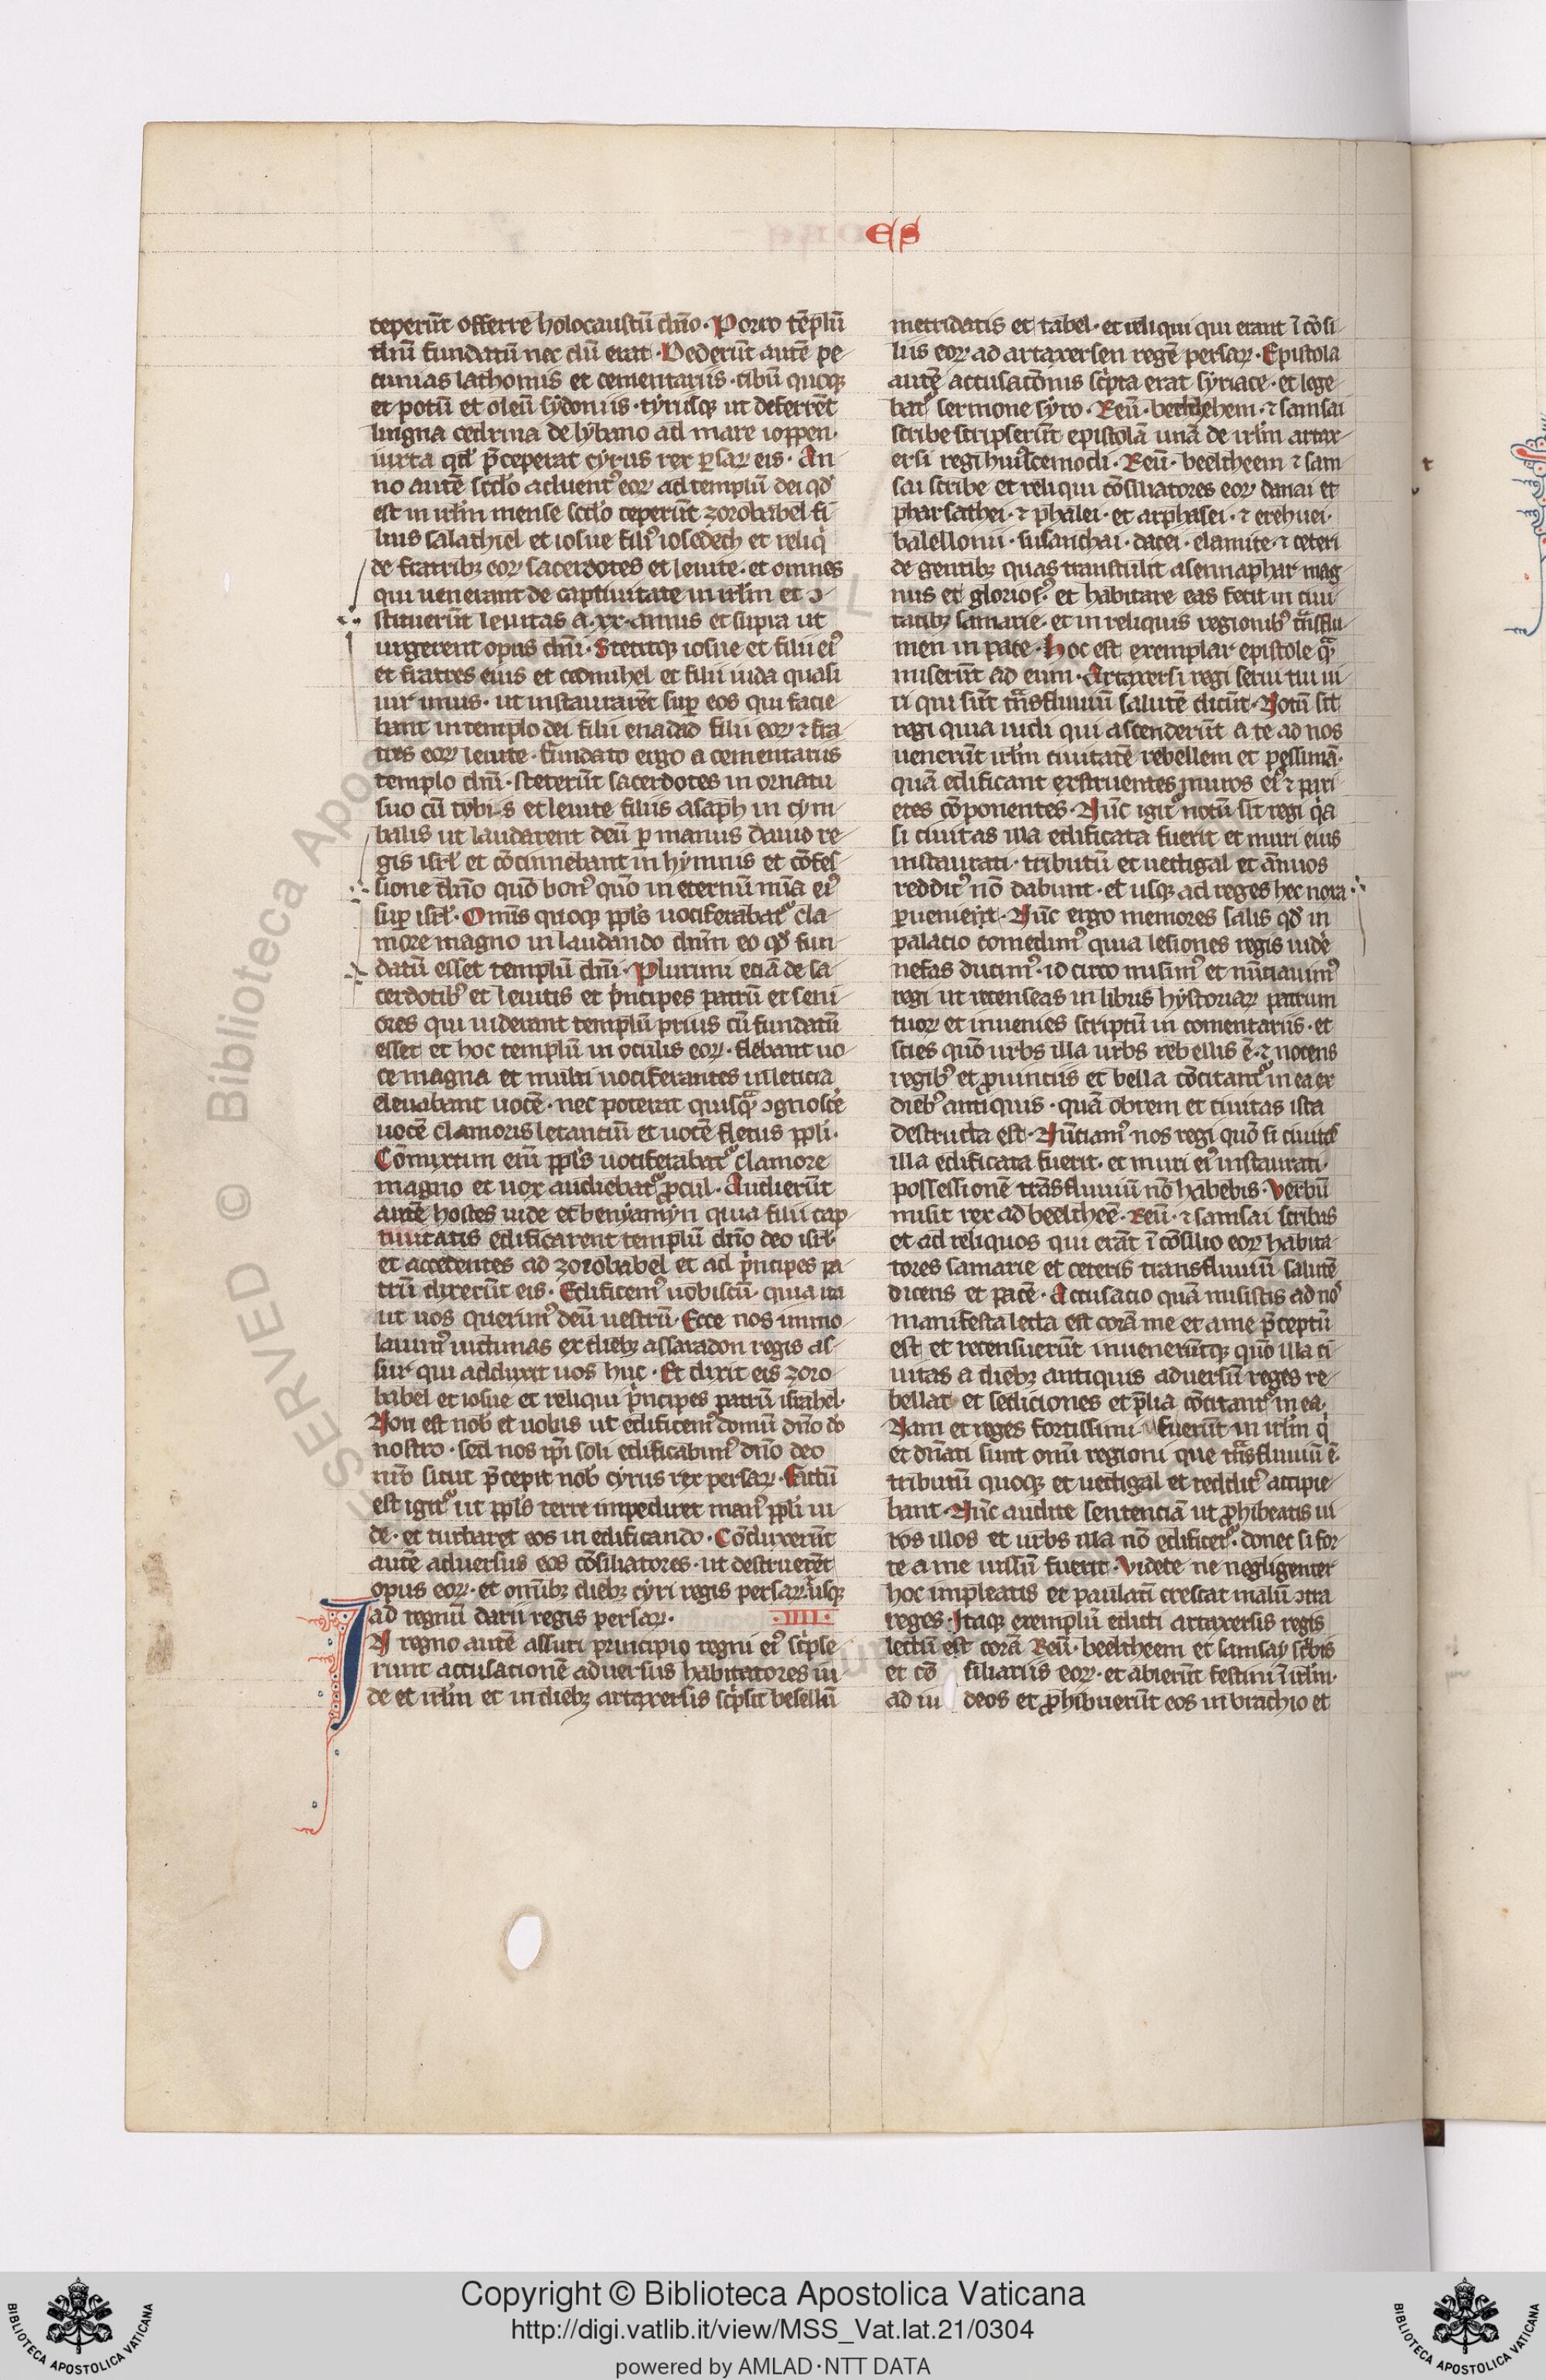 es
ceperūt offerre holocaustū dn̄o. Porro tēplū
dn̄i fundatū nec dū erat. Dederūt autē pe-
cunias lathomis et cementariis. cibū quoqꝫ
et potū et oleū sydoniis. tyriisqꝫ ut deferrēt
lingna cedrina de lybano ad mare ioppen.
iuxta qd̓ p̄ceperat cyrus rex ꝑsaꝝ eis. An-
no autē scd̓o aduentꝰ eoꝝ ad templū dei qd̓
est in irl̓m mense scd̓o ceperūt zorobabel fi-
lius salathiel et iosue filiꝰ iosedech et reliqi
de fratribꝫ eoꝝ sacerdotes et leuite. et omnes
qui uenerant de captiuitate in irl̓m et ꝯ-
stituerūt leuitas a .xx. annis et supra ut
urgerent opus dn̄i. Stetitqꝫ iosue et filii eiꝰ
et fratres eius et cedmihel et filii iuda quasi
uir unus. ut instaurarēt suꝑ eos qui facie-
bant in templo dei filii enadad filii eoꝝ ⁊ fra-
tres eoꝝ leuite. fundato ergo a cementariis
templo dn̄i. steterūt sacerdotes in ornatu
suo cū tybis et leuite filiis asaph in cym-
balis ut laudarent deū ꝑ manus dauid re-
gis isrl̓ et cōcinnebant in hymnis et cōfes-
sione dn̄o quō bonꝰ quō in eternū mīa eiꝰ
suꝑ isrl̓. Omīs quoqꝫ ppl̓s uociferabat᷑ cla-
more magno in laudando dn̄m eo qd̓ fun-
datū esset templū dn̄i. Plurimi eciā de sa-
cerdotibꝰ et leuitis et pͥncipes patrū et seni-
ores qui uiderant templū prius cū fundatū
esset et hoc templū in oculis eoꝝ. flebant uo-
ce magna et multi uociferantes in leticia
eleuabant uocē. nec poterat quisqꝫ ꝯgnosce᷑
uocē clamoris letanciū et uocē fletus ppl̓i.
Cōmixtim eni ppl̓s uociferabat᷑ clamore
magno et uox audiebat᷑ ꝓcul. Audierūt
autē hostes iude et benyamyn quia filii cap-
tiuitatis edificarent templū dn̄o deo isrl̓.
et accedentes ad zorobabel et ad pͥncipes pa-
trū dixerūt eis. Edificemꝰ uobiscū. quia ita
ut uos querimꝰ deū uestrū. Ecce nos immo-
lauimꝰ uictimas ex diebꝫ assaradon regis as-
sur qui adduxit nos huc. Et dixit eis zoro-
babel et iosue et reliqui pͥncipes patrū israhel.
Non est nob̓ et uobis ut edificemꝰ domū dn̄o do
nostro. sed nos ip̄i soli edificabimꝰ dn̄o deo
nr̄o sicut p̄cepit nob̓ cyrus rex persaꝝ. Factū
est igit᷑ ut ppl̓s terre impediret manꝰ ppl̓i iu-
de. et turbaret eos in edificando. Cōduxerūt
autē aduersus eos cōsiliatores. ut destruerēt
opus eoꝝ. et omībꝫ diebꝫ cyri regis persaꝝ usqꝫ
ad regnū darii regis persaꝝ. .IIII.
IN regno autē assueri principio regni eiꝰ scͥpse-
runt accusationē aduersus habitatores iu-
de et irl̓m et in diebꝫ artaxersis scͥpsit besellā
metridatis et tabel. et reliqui qui erant ī cōsi-
liis eoꝝ ad artaxersen regē persaꝝ. Epistola
autē accusacōnis scͥpta erat syriace. et lege-
bat᷑ sermone syro. Reū. beelthehem. ⁊ samsai
scribe scripserūt epistolā unā de irl̓m artax-
ersi regi huiꝰcemodi. Reū. beeltheem ⁊ sam-
sai scribe et reliqui cōsiliatores eoꝝ danai et
pharsathei. ⁊ phalei. et arphasei. ⁊ erehuei.
balellonii. susanchai. dacei. elamite. ⁊ ceteri
de gentibꝫ quas transtulit asennaphar mag-
nus et gloriosꝰ. et habitare eas fecit in ciui-
tatibꝫ samarie. et in reliquis regionibꝰ tᷓnsflu-
men in pace. Hoc est exemplar epistole qᷓ
miserūt ad eum. Artaxersi regi serui tui ui-
ri qui sūt tᷓnsfluuiū salutē dicūt. Notū sit
regi quia iudi qui ascenderūt a te ad nos
uenerūt irl̓m ciuitatē rebellem et pessimā.
quā edificant exstruentes muros eiꝰ ⁊ pari-
etes cōponentes. Nūc igit᷑ notū sit regi qͥa
si ciuitas illa edificata fuerit et muri eius
instaurati. tributū et uectigal et ānuos
redditꝰ nō dabunt. et usqꝫ ad reges hec noxa
ꝑueniet. Nūc ergo memores salis qd̓ in
palacio comedimꝰ quia lesiones regis uide᷑
nefas ducimꝰ. idcirco misimꝰ et nūciauimꝰ
regi ut recenseas in libris hystoriaꝝ patrum
tuoꝝ et inuenies scriptū in comentariis. et
scies quō urbs illa urbs rebellis ē. ⁊ nocens
regibꝰ et ꝓuinciis et bella cōcitant᷑ in ea ex
diebꝰ antiquis. quā obrem et ciuitas ista
destructa est. Nūciamꝰ nos regi quō si ciuitas
illa edificata fuerit. et muri eiꝰ instaurati.
possessionē trāsfluuiū nō habebis. Verbū
misit rex ad beeltheē. Reū. ⁊ samsai scribas
et ad reliquos qui erāt ī cōsilio eoꝝ habita-
tores samarie et ceteris transfluuiū salutē
dicens et pacē. Accusacio quā misistis ad noꝰ
manifesta lecta est corā me et a me p̄ceptū
est et recensuerūt inuenerūtqꝫ quō illa ci-
uitas a diebꝫ antiquis aduersū reges re-
bellat et sediciones et p̄lia cōcitant᷑ in ea.
Nam et reges fortissimi fuerūt in irl̓m qͥ
et dn̄ati sunt omī regioni que tᷓnsfluuiū ē.
tributū quoqꝫ et uectigal et redditꝰ accipie-
bant. Nūc audite sentenciā ut ꝓhibeatis ui-
ros illos et urbs illa nō edificet᷑. donec si for-
te a me iussū fuerit. Videte ne negligenter
hoc impleatis et paulatī crescat malū ꝯtra
reges. Itaqꝫ exemplū edicti artaxersis regis
lectū est corā Reū. beeltheem et samsay scͥbis
et cō siliariis eoꝝ. et abierūt festini ī irl̓m.
ad iu deos et ꝓhibuerūt eos in brachio et
RESERVED © Biblioteca Apostolica
Copyright © Biblioteca Apostolica Vaticana
http://digi.vatlib.it/view/MSS_Vat.lat.21/0304
powered by AMLAD·NTT DATA
BIBLIOTECA APOSTOLICA VATICANA
BIBLIOTECA APOSTOLICA VATICANA